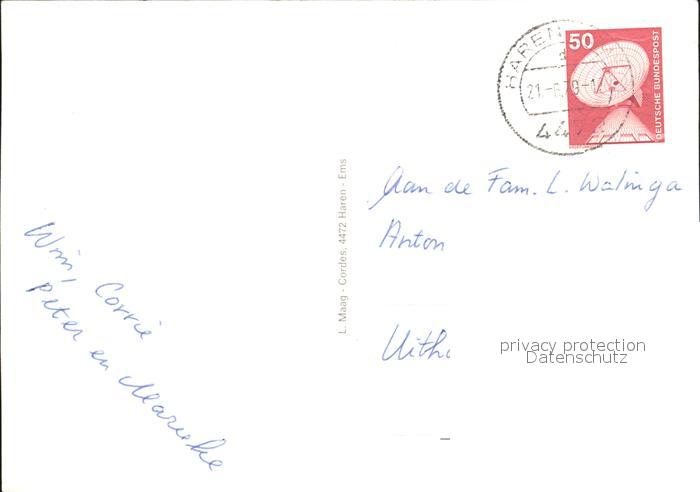 HAREN
21.-6.79-1
447
50
DEUTSCHE BUNDESPOST
Aan de Fam. L. Walinga
Anton
Uitho
privacy protection
Datenschutz
L. Maag - Cordes, 4472 Haren - Ems
Wim, Corrie
Peter en Marieke